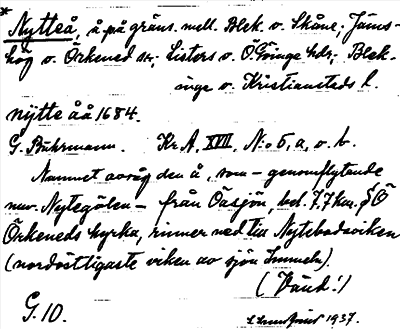 * Nytteå, å på gräns. mell. Blek. o. Skåne. Jäms-
hög o. Örkened sn, Listers o. Ö. Göinge hdr, Blek-
inge o. Kristianstads l.
nÿtte åå 1684.
G. Buhrmann. Kr. A. XVII, N:o 5, a, o. b.
Namnet avsåg den å, som – genomflytande
nuv. Nytegölen – från Öasjön, bel. 7,7 km. SÖ
Örkeneds kyrka, rinner ned till Nytebodaviken
(nordöstligaste viken av sjön Immeln).
(Vänd!)
G. 10. 1937.